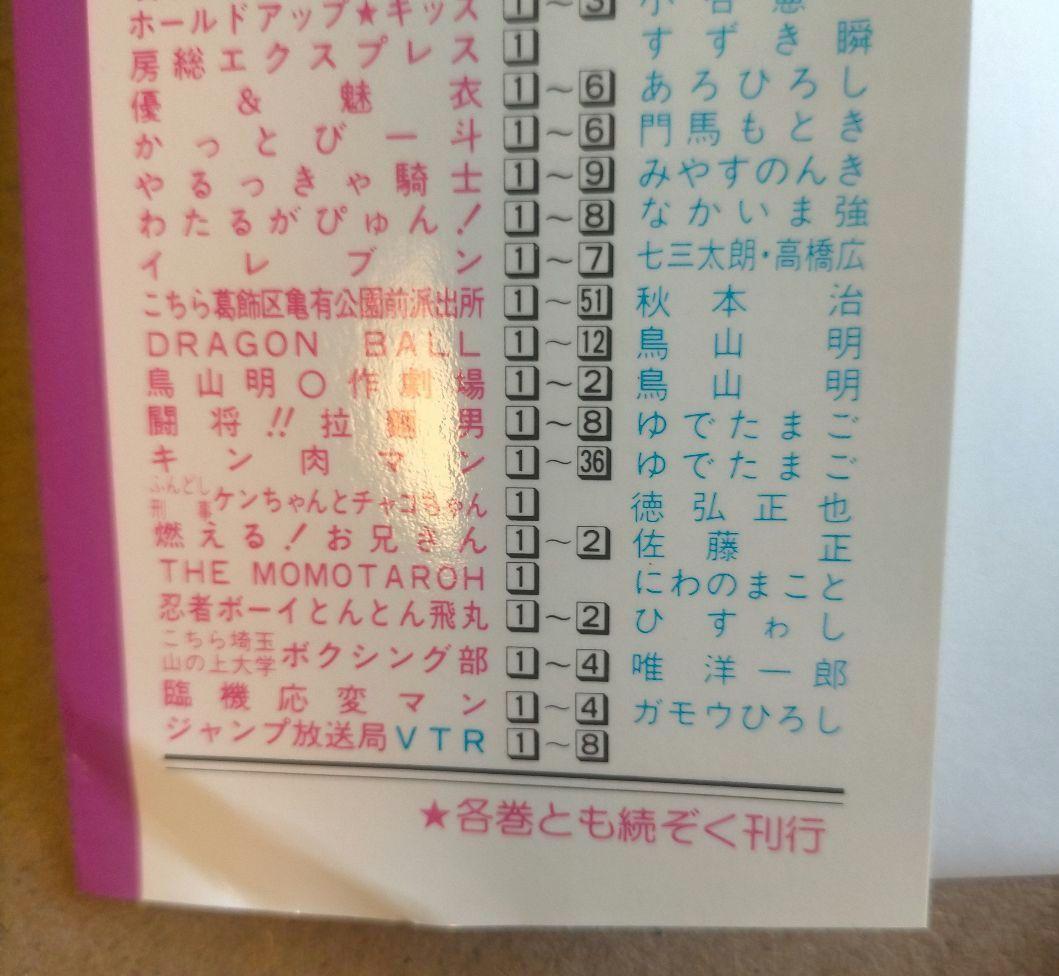 ホールドアップ★キッズ 1～3 小谷憲一
房総エクスプレス 1 すずき瞬
優&魅衣 1～6 あろひろし
かっとび一斗 1～6 門馬もとき
やるっきゃ騎士 1～9 みやすのんき
わたるがぴゅん! 1～8 なかいま強
イレブン 1～7 七三太朗・高橋広
こちら葛飾区亀有公園前派出所 1～51 秋本治
DRAGON BALL 1～12 鳥山明
鳥山明○作劇場 1～2 鳥山明
闘将!!拉麵男 1～8 ゆでたまご
キン肉マン 1～36 ゆでたまご
ふんどし刑事ケンちゃんとチャコちゃん 1 徳弘正也
燃える!お兄さん 1～2 佐藤正
THE MOMOTAROH 1 にわのまこと
忍者ボーイとんとん飛丸 1～2 ひすゎし
こちら埼玉山の上大学ボクシング部 1～4 唯洋一郎
臨機応変マン 1～4 ガモウひろし
ジャンプ放送局VTR 1～8
★各巻とも続ぞく刊行